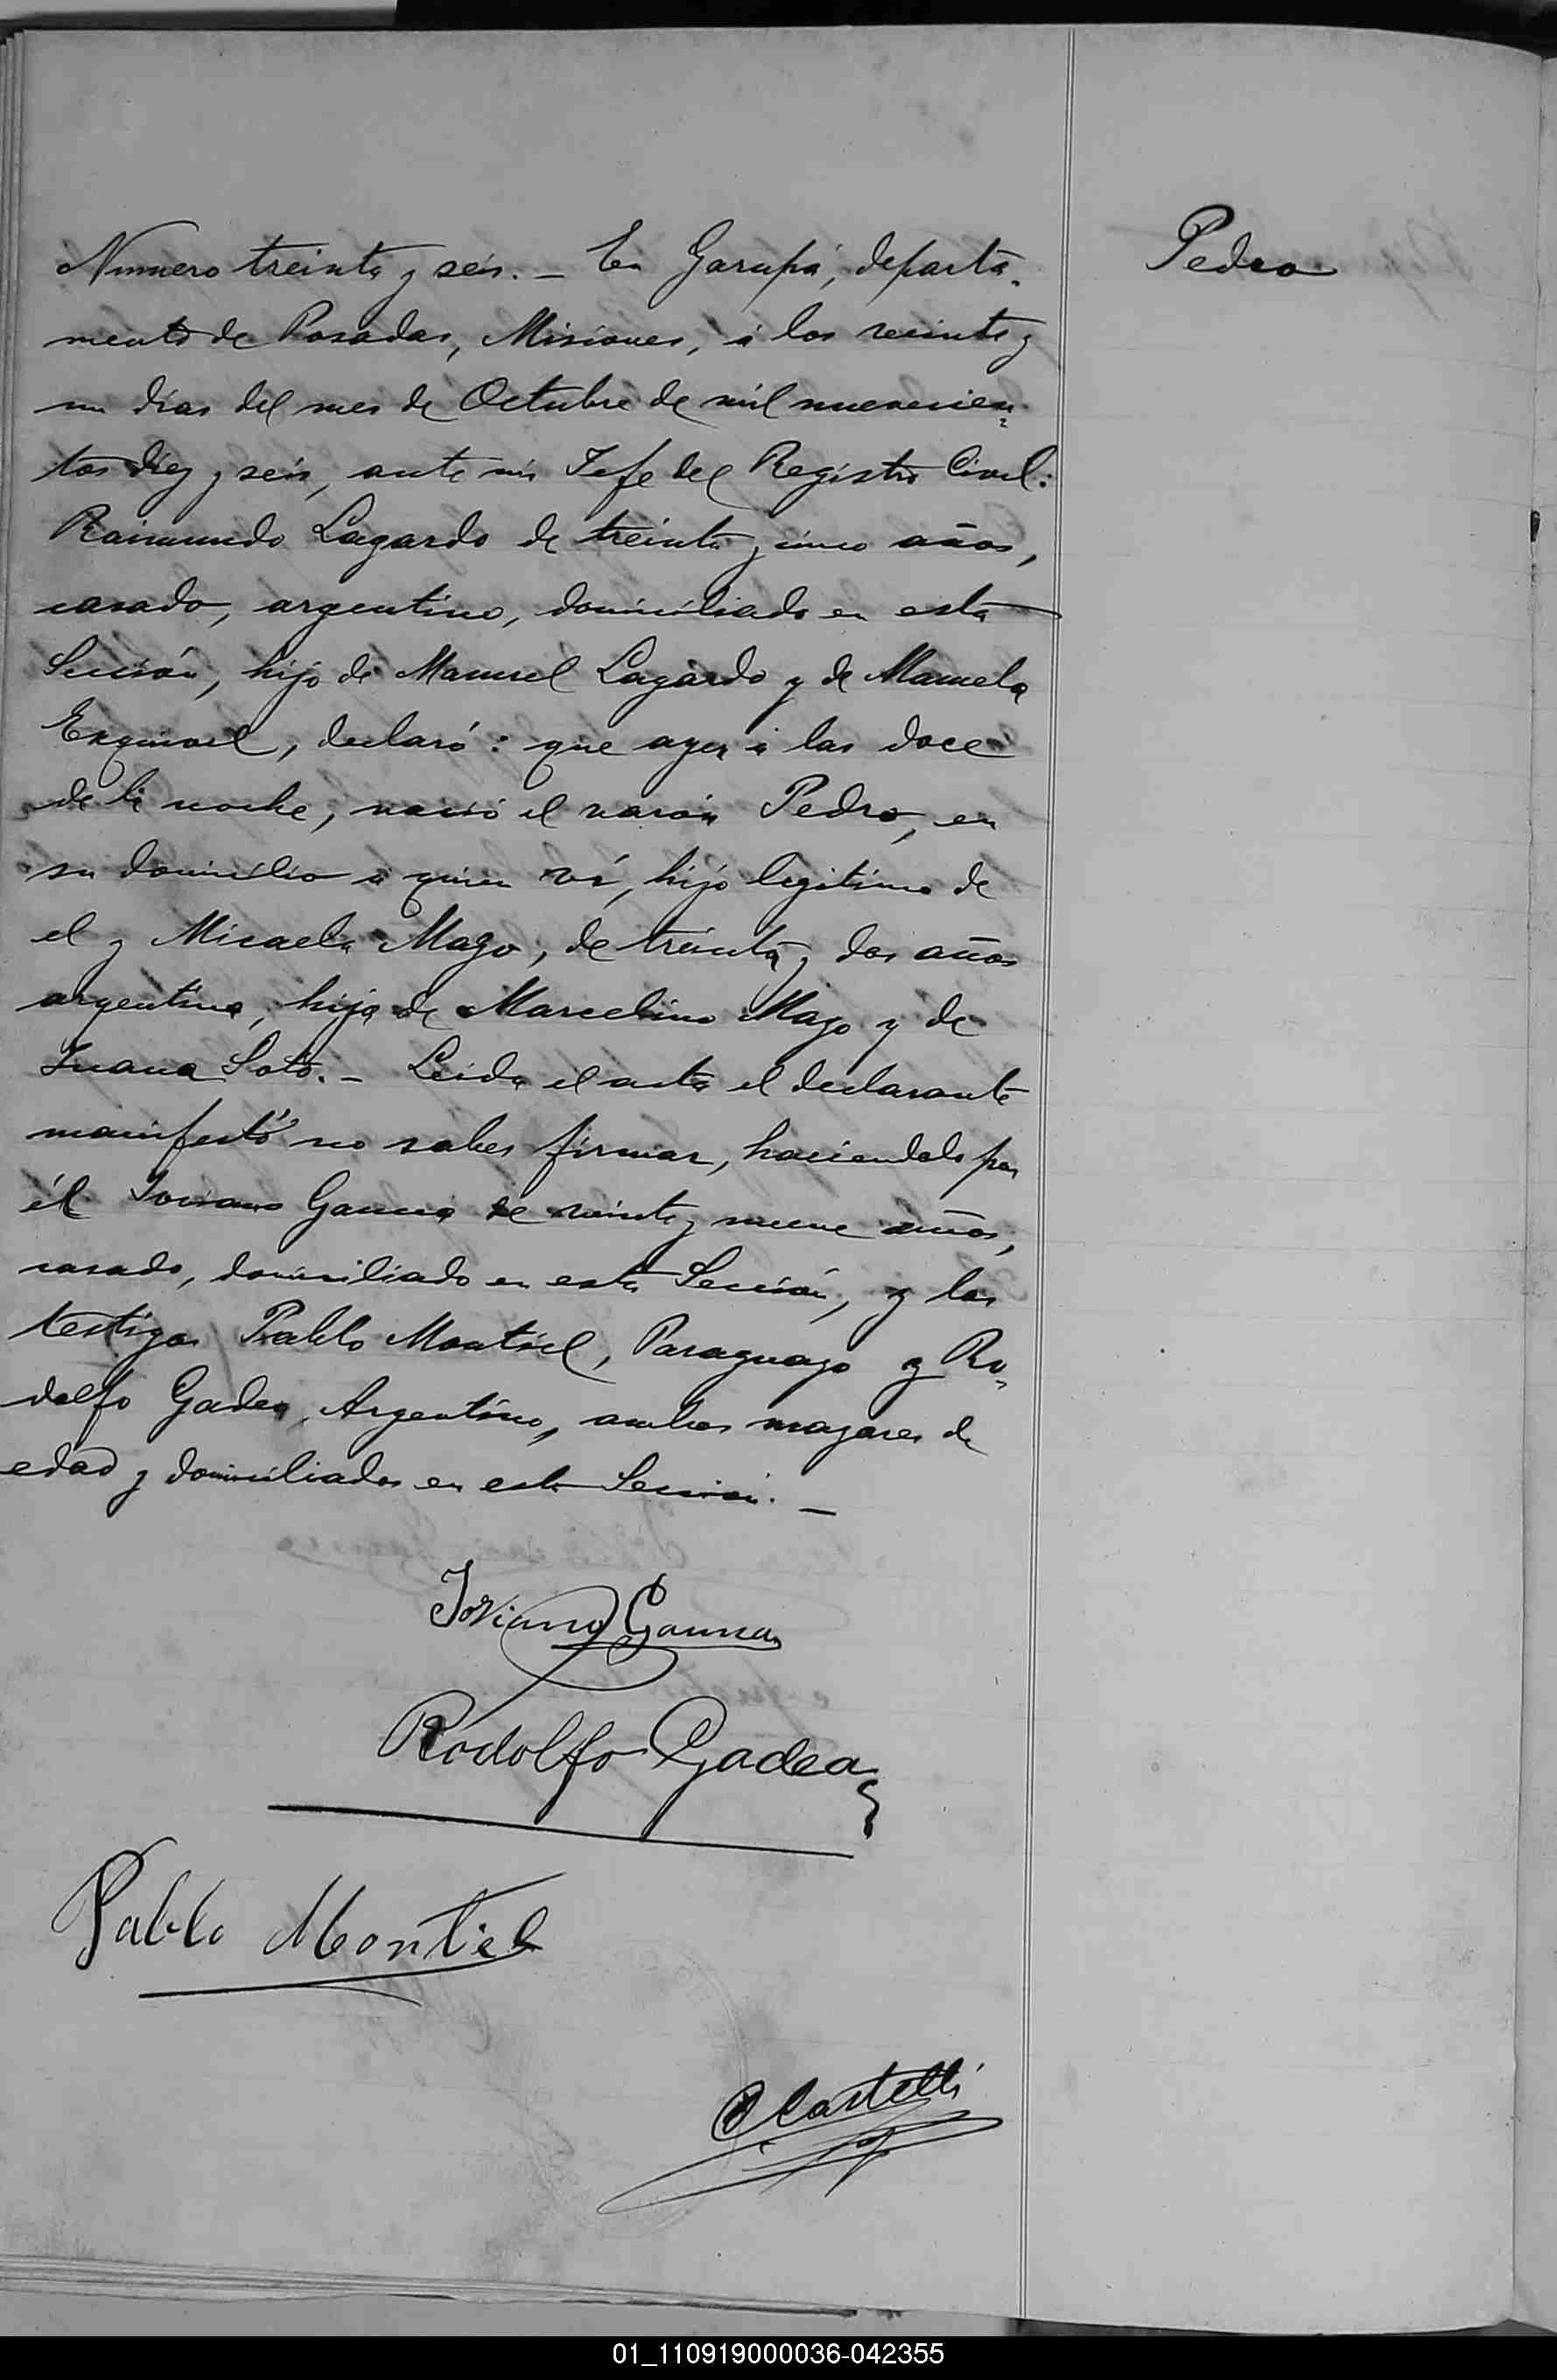 Numero treinta y seis. _ En Garupá, departa-
Pedro
mento de Posadas, Misiones, á los veinte y
un dias del mes de Octubre de mil novecien-
tos diez y seis, ante mi Jefe del Registro Civil:
Raimundo Lagardo de treinta y cinco años,
casado, argentino, domiciliado en esta
Sección, hijo de Manuel Lagardo y de Manuela
Esquivel, declaró: que ayer á las doce
de la noche, nació el varón Pedro, en
su domicilio á quien ví, hijo legitimo de
el y Micaela Mazo, de treinta y dos años
argentina, hija de Marcelino Mazo y de
Juana Soto. _ Leida el acta el declarante
manifestó no saber firmar, haciendolo por
él Joviano Gauna de veinte y nueve años,
casado, domiciliado en esta Sección, y los
testigos Pablo Montiel, Paraguayo y Ro-
dolfo Gadea, Argentino, ambos mayores de
edad y domiciliados en esta Sección. _
Joviano Gauna
Rodolfo Gadea
Pablo Montiel
Castelli
01_110919000036-042355